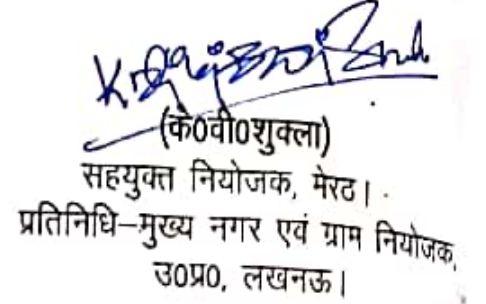 (के0वी0शुक्ला)
सहयुक्त नियोजक, मेरठ।
प्रतिनिधि–मुख्य नगर एवं ग्राम नियोजक,
उ0प्र0, लखनऊ।